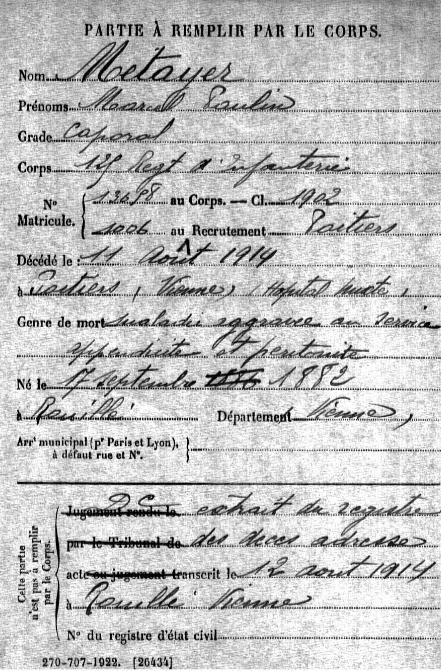 PARTIE À REMPLIR PAR LE CORPS.
Nom Metayer
Prénoms Marcel Paulin
Grade Caporal
Corps 125 Regt d'Infanterie
N° Matricule. au Corps. — Cl. 1902
1006 au Recrutement Poitiers
Décédé le 11 Août 1914
à Poitiers, Vienne, (Hopital mixte)
Genre de mort maladie aggravée au service
appendicite et peritonite
Né le 7 septembre 1882
à Rouillé Département Vienne
Arrt municipal (pr Paris et Lyon),
à défaut rue et N°.
Cette partie n'est pas à remplir par le Corps.
Jugement rendu le extrait du registre
par le Tribunal de des deces adresse
acte ou jugement transcrit le 12 aout 1914
à Rouille Vienne
N° du registre d'état civil
270-707-1922. [26434]